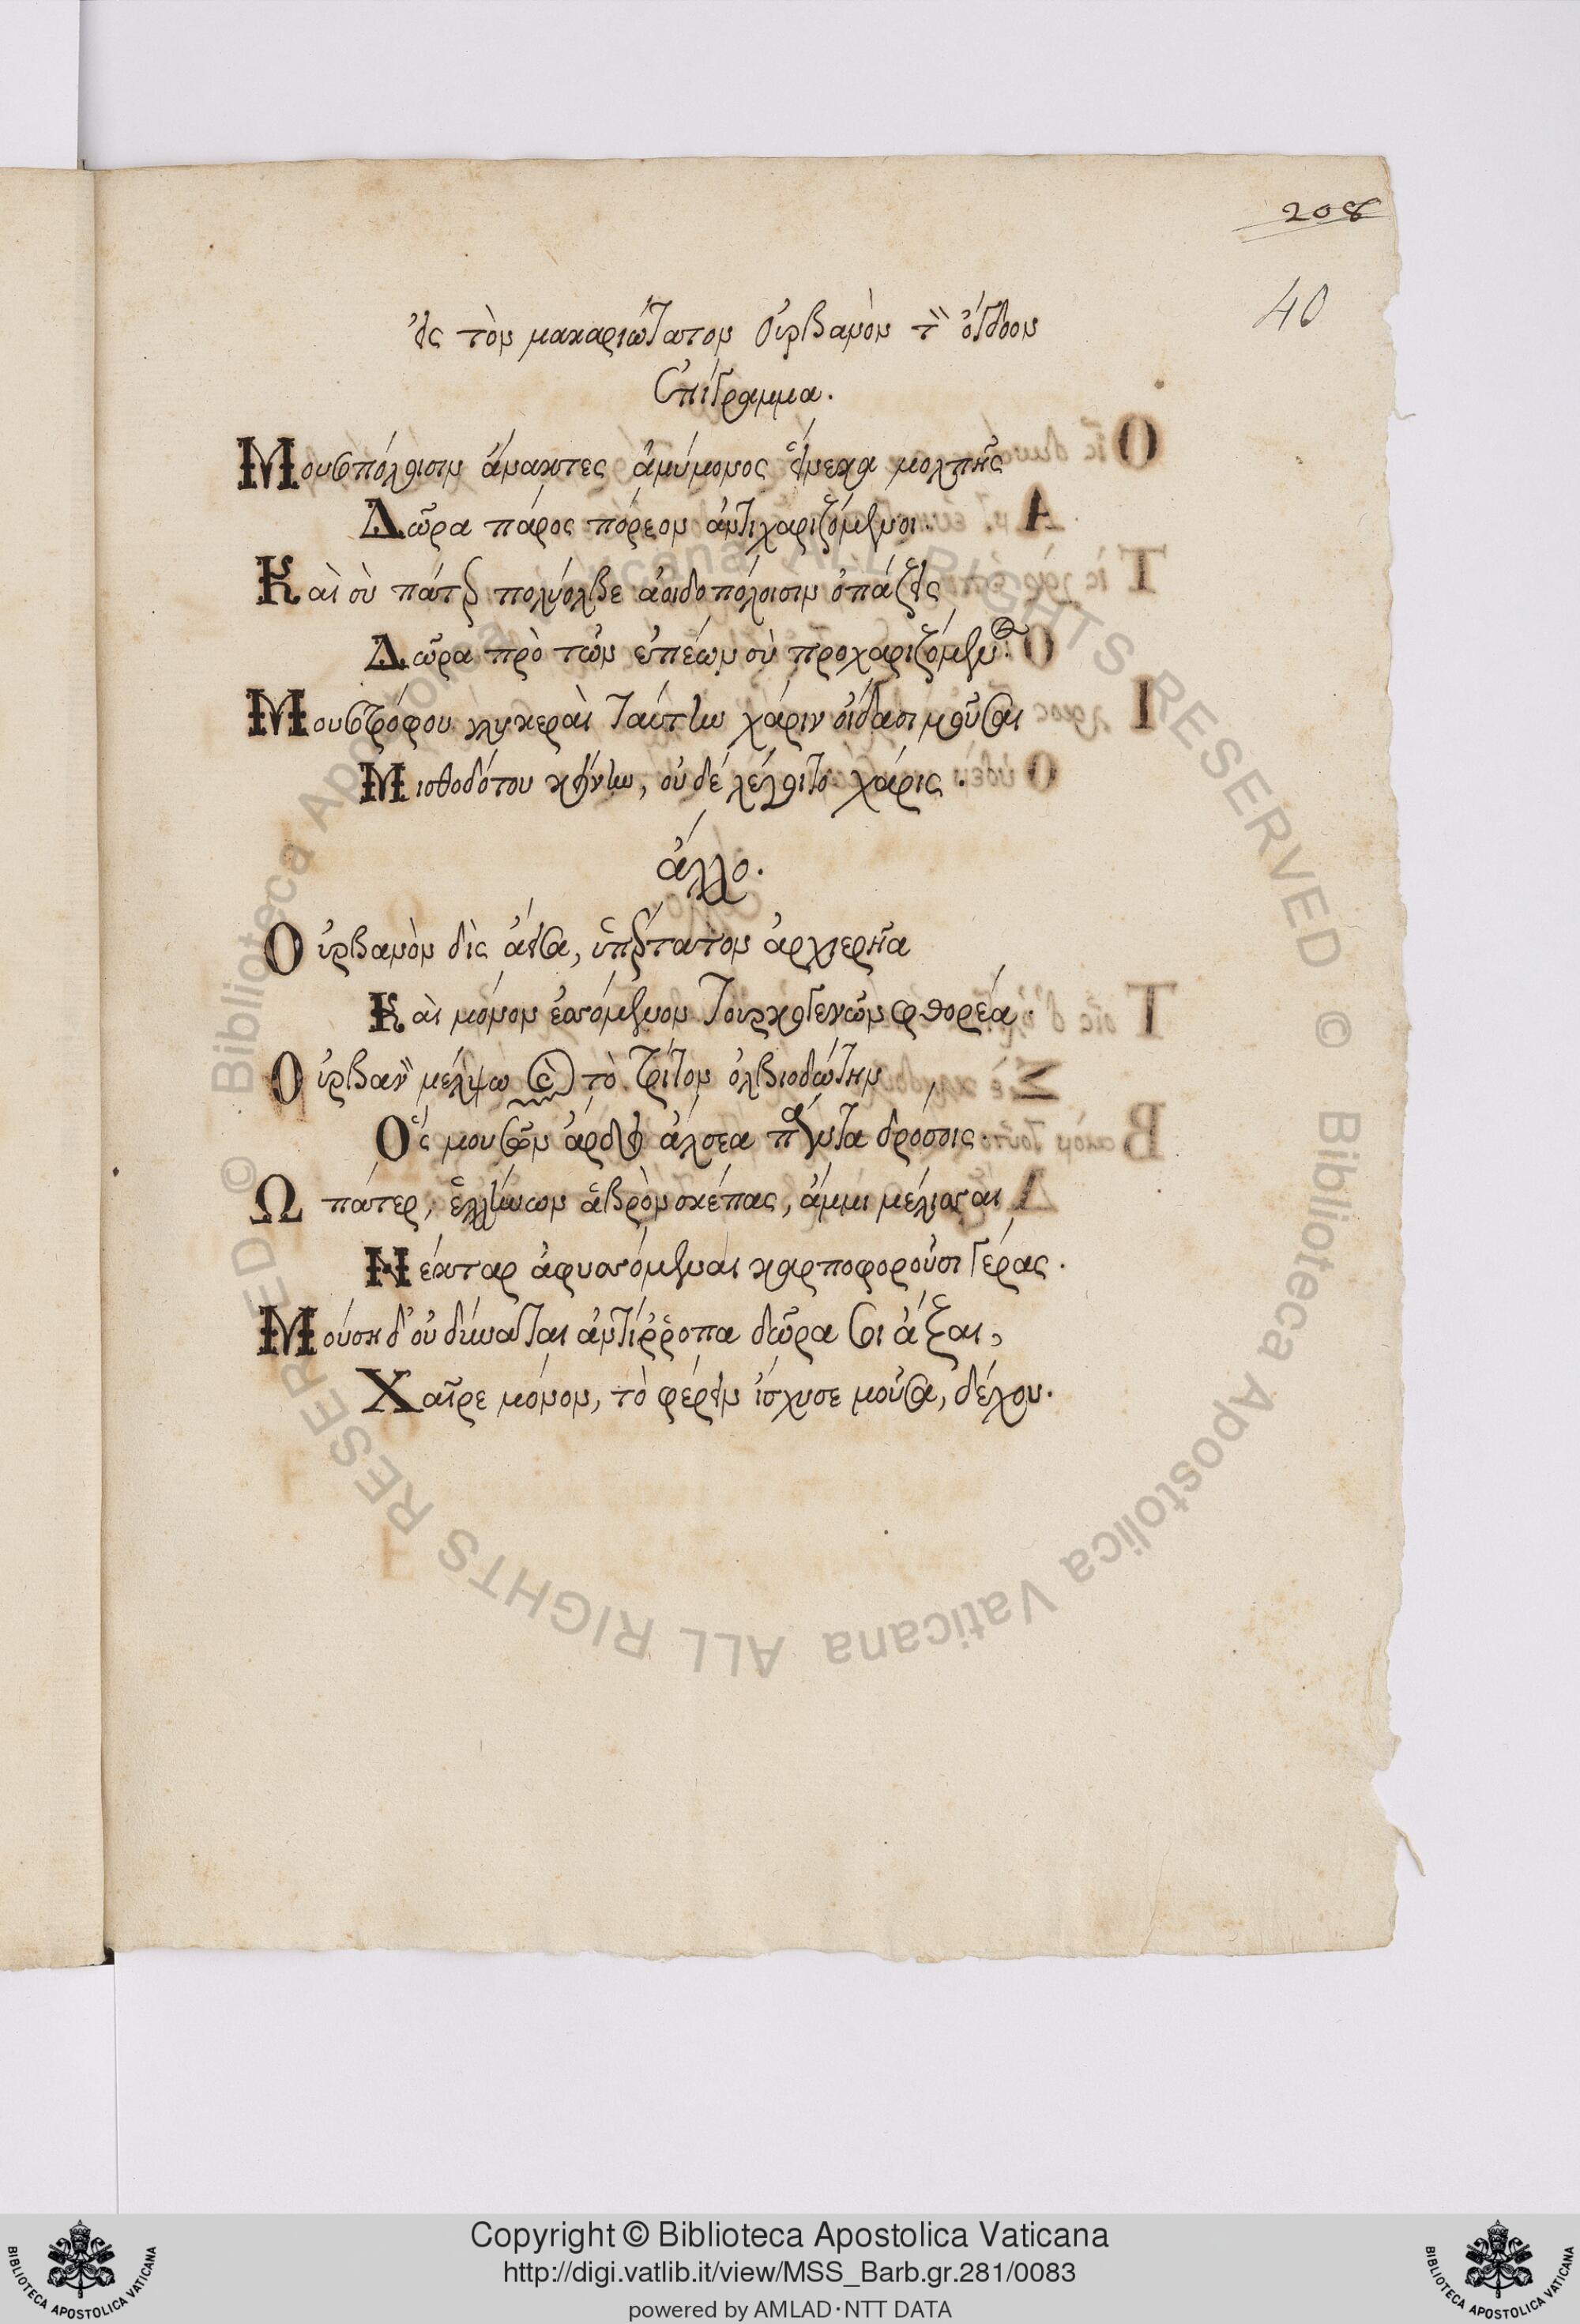 208
40
εἰς τὸν μακαριώτατον Οὐρβανὸν τὸν ὄγδοον
Ἐπίγραμμα.
Μουσοπόλοισιν ἄνακτες ἀμύμονος εἵνεκα μολπῆς
Δῶρα πάρος πόρεον ἀντιχαριζόμενοι.
Καὶ σὺ πάτερ πολύολβε ἀοιδοπόλοισιν ὀπάζεις
Δῶρα πρὸ τῶν ἐπέων σὺ προχαριζόμενος.
Μουσοτρόφου γλυκεραὶ ταύτην χάριν οἴδασι μοῦσαι
Μισθοδότου κείνην, οὐδὲ λέλοιπε χάρις.
ἄλλο.
Οὐρβανὸν δὶς ἄεισα, ὑπέρτατον ἀρχιερῆα
Καὶ μόνον ἐσσόμενον Τουρκογενῶν φθορέα.
Οὐρβανὸν μέλψω καὶ τὸ τρίτον ὀλβιοδώτην
Ὅς μουσῶν ἄρδει ἄλσεα πάντα δρόσοις.
Ὦ πάτερ, ἑλλήνων ἁβρὸν σκέπας, ἄμμι μέλισσαι
Νέκταρ ἀφυσσόμεναι καρποφοροῦσι γέρας.
Μούση δ' οὐ δύναται ἀντίῤῥοπα δῶρα σοι ἄξαι,
Χαῖρε μόνον, τὸ φέρειν ἴσχυσε μοῦσα, δέχου.
© Biblioteca Apostolica Vaticana ALL RIGHTS RESERVED © Biblioteca Apostolica Vaticana ALL RIGHTS RESERVED
Copyright © Biblioteca Apostolica Vaticana
http://digi.vatlib.it/view/MSS_Barb.gr.281/0083
powered by AMLAD·NTT DATA
BIBLIOTECA APOSTOLICA VATICANA
BIBLIOTECA APOSTOLICA VATICANA